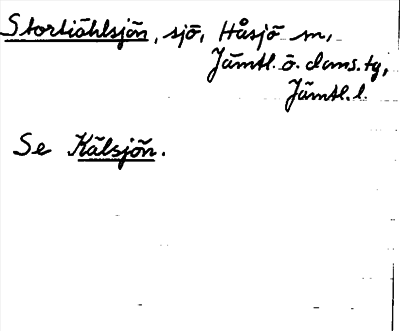 Stortiählsjön, sjö, Håsjö sn,
Jämtl. ö. doms. tg,
Jämtl. l.
Se Kälsjön.